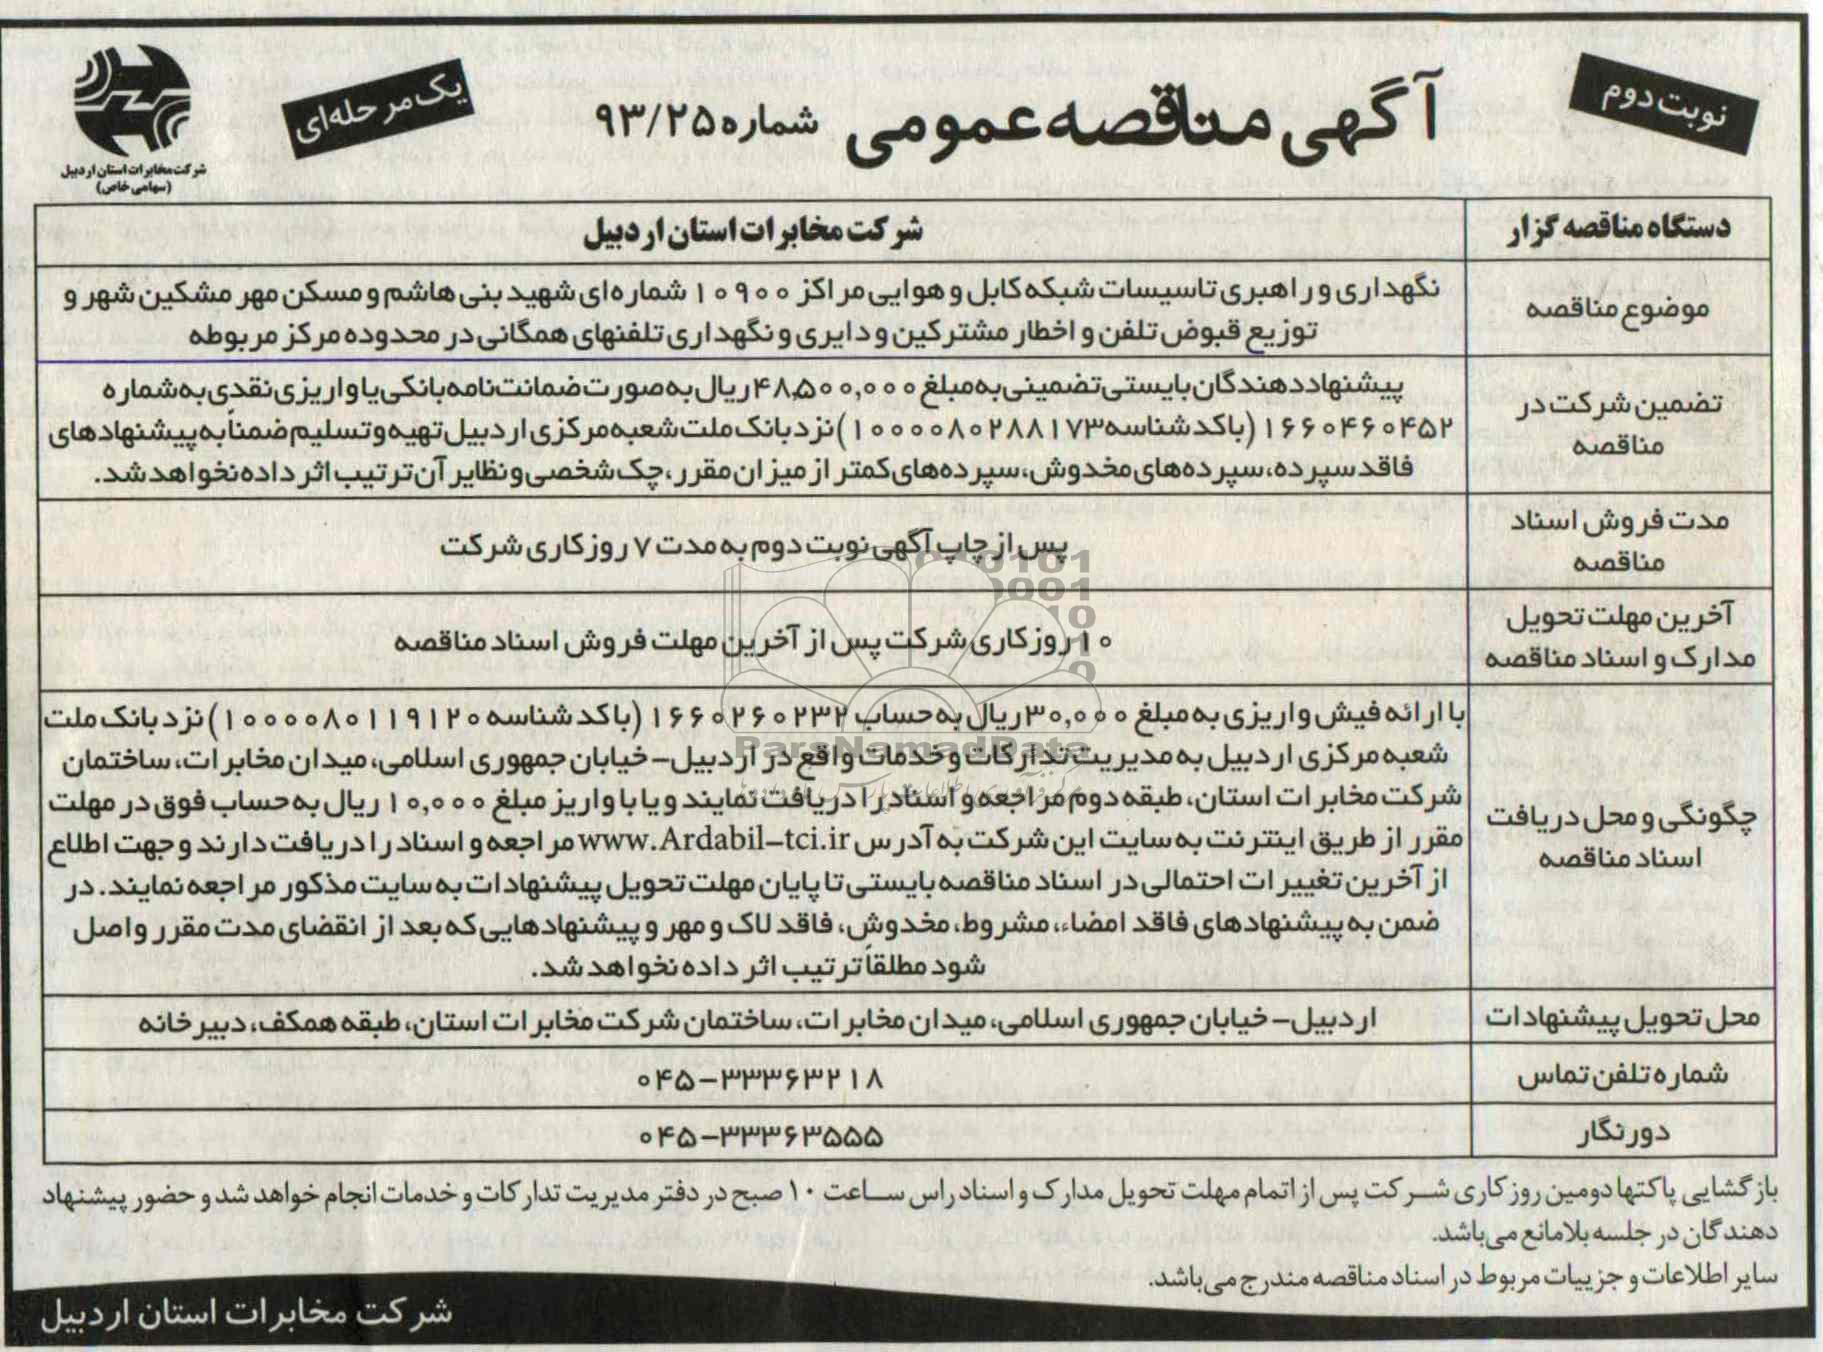 نوبت دوم
آگهی مناقصه عمومی شماره ۹۳/۲۵
یک مرحله‌ای
شرکت مخابرات استان اردبیل
(سهامی خاص)
دستگاه مناقصه گزار
شرکت مخابرات استان اردبیل
موضوع مناقصه
نگهداری و راهبری تاسیسات شبکه کابل و هوایی مراکز ۱۰۹۰۰ شماره‌ای شهید بنی هاشم و مسکن مهر مشکین شهر و
توزیع قبوض تلفن و اخطار مشترکین و دایری و نگهداری تلفنهای همگانی در محدوده مرکز مربوطه
تضمین شرکت در
مناقصه
پیشنهاددهندگان بایستی تضمینی به مبلغ ۴۸,۵۰۰,۰۰۰ ریال به صورت ضمانت نامه بانکی یا واریزی نقدی به شماره
۱۶۶۰۴۶۰۴۵۲ (باکد شناسه ۱۰۰۰۰۸۰۲۸۸۱۷۳) نزد بانک ملت شعبه مرکزی اردبیل تهیه و تسلیم ضمناً به پیشنهادهای
فاقد سپرده، سپرده‌های مخدوش، سپرده‌های کمتر از میزان مقرر، چک شخصی و نظایر آن ترتیب اثر داده نخواهد شد.
مدت فروش اسناد
مناقصه
پس از چاپ آگهی نوبت دوم به مدت ۷ روز کاری شرکت
آخرین مهلت تحویل
مدارک و اسناد مناقصه
۱۰ روز کاری شرکت پس از آخرین مهلت فروش اسناد مناقصه
چگونگی و محل دریافت
اسناد مناقصه
با ارائه فیش واریزی به مبلغ ۳۰,۰۰۰ ریال به حساب ۱۶۶۰۲۶۰۲۳۲ (باکد شناسه ۱۰۰۰۰۸۰۱۱۹۱۲۰) نزد بانک ملت
شعبه مرکزی اردبیل به مدیریت تدارکات و خدمات واقع در اردبیل- خیابان جمهوری اسلامی، میدان مخابرات، ساختمان
شرکت مخابرات استان، طبقه دوم مراجعه و اسناد را دریافت نمایند و یا با واریز مبلغ ۱۰,۰۰۰ ریال به حساب فوق در مهلت
مقرر از طریق اینترنت به سایت این شرکت به آدرس www.Ardabil-tci.ir مراجعه و اسناد را دریافت دارند و جهت اطلاع
از آخرین تغییرات احتمالی در اسناد مناقصه بایستی تا پایان مهلت تحویل پیشنهادات به سایت مذکور مراجعه نمایند. در
ضمن به پیشنهادهای فاقد امضاء، مشروط، مخدوش، فاقد لاک و مهر و پیشنهادهایی که بعد از انقضای مدت مقرر واصل
شود مطلقاً ترتیب اثر داده نخواهد شد.
محل تحویل پیشنهادات
اردبیل- خیابان جمهوری اسلامی، میدان مخابرات، ساختمان شرکت مخابرات استان، طبقه همکف، دبیرخانه
شماره تلفن تماس
۰۴۵-۳۳۳۶۳۲۱۸
دورنگار
۰۴۵-۳۳۳۶۳۵۵۵
بازگشایی پاکتها دومین روز کاری شرکت پس از اتمام مهلت تحویل مدارک و اسناد راس ساعت ۱۰ صبح در دفتر مدیریت تدارکات و خدمات انجام خواهد شد و حضور پیشنهاد
دهندگان در جلسه بلامانع می‌باشد.
سایر اطلاعات و جزییات مربوط در اسناد مناقصه مندرج می‌باشد.
شرکت مخابرات استان اردبیل
ParsNamadData